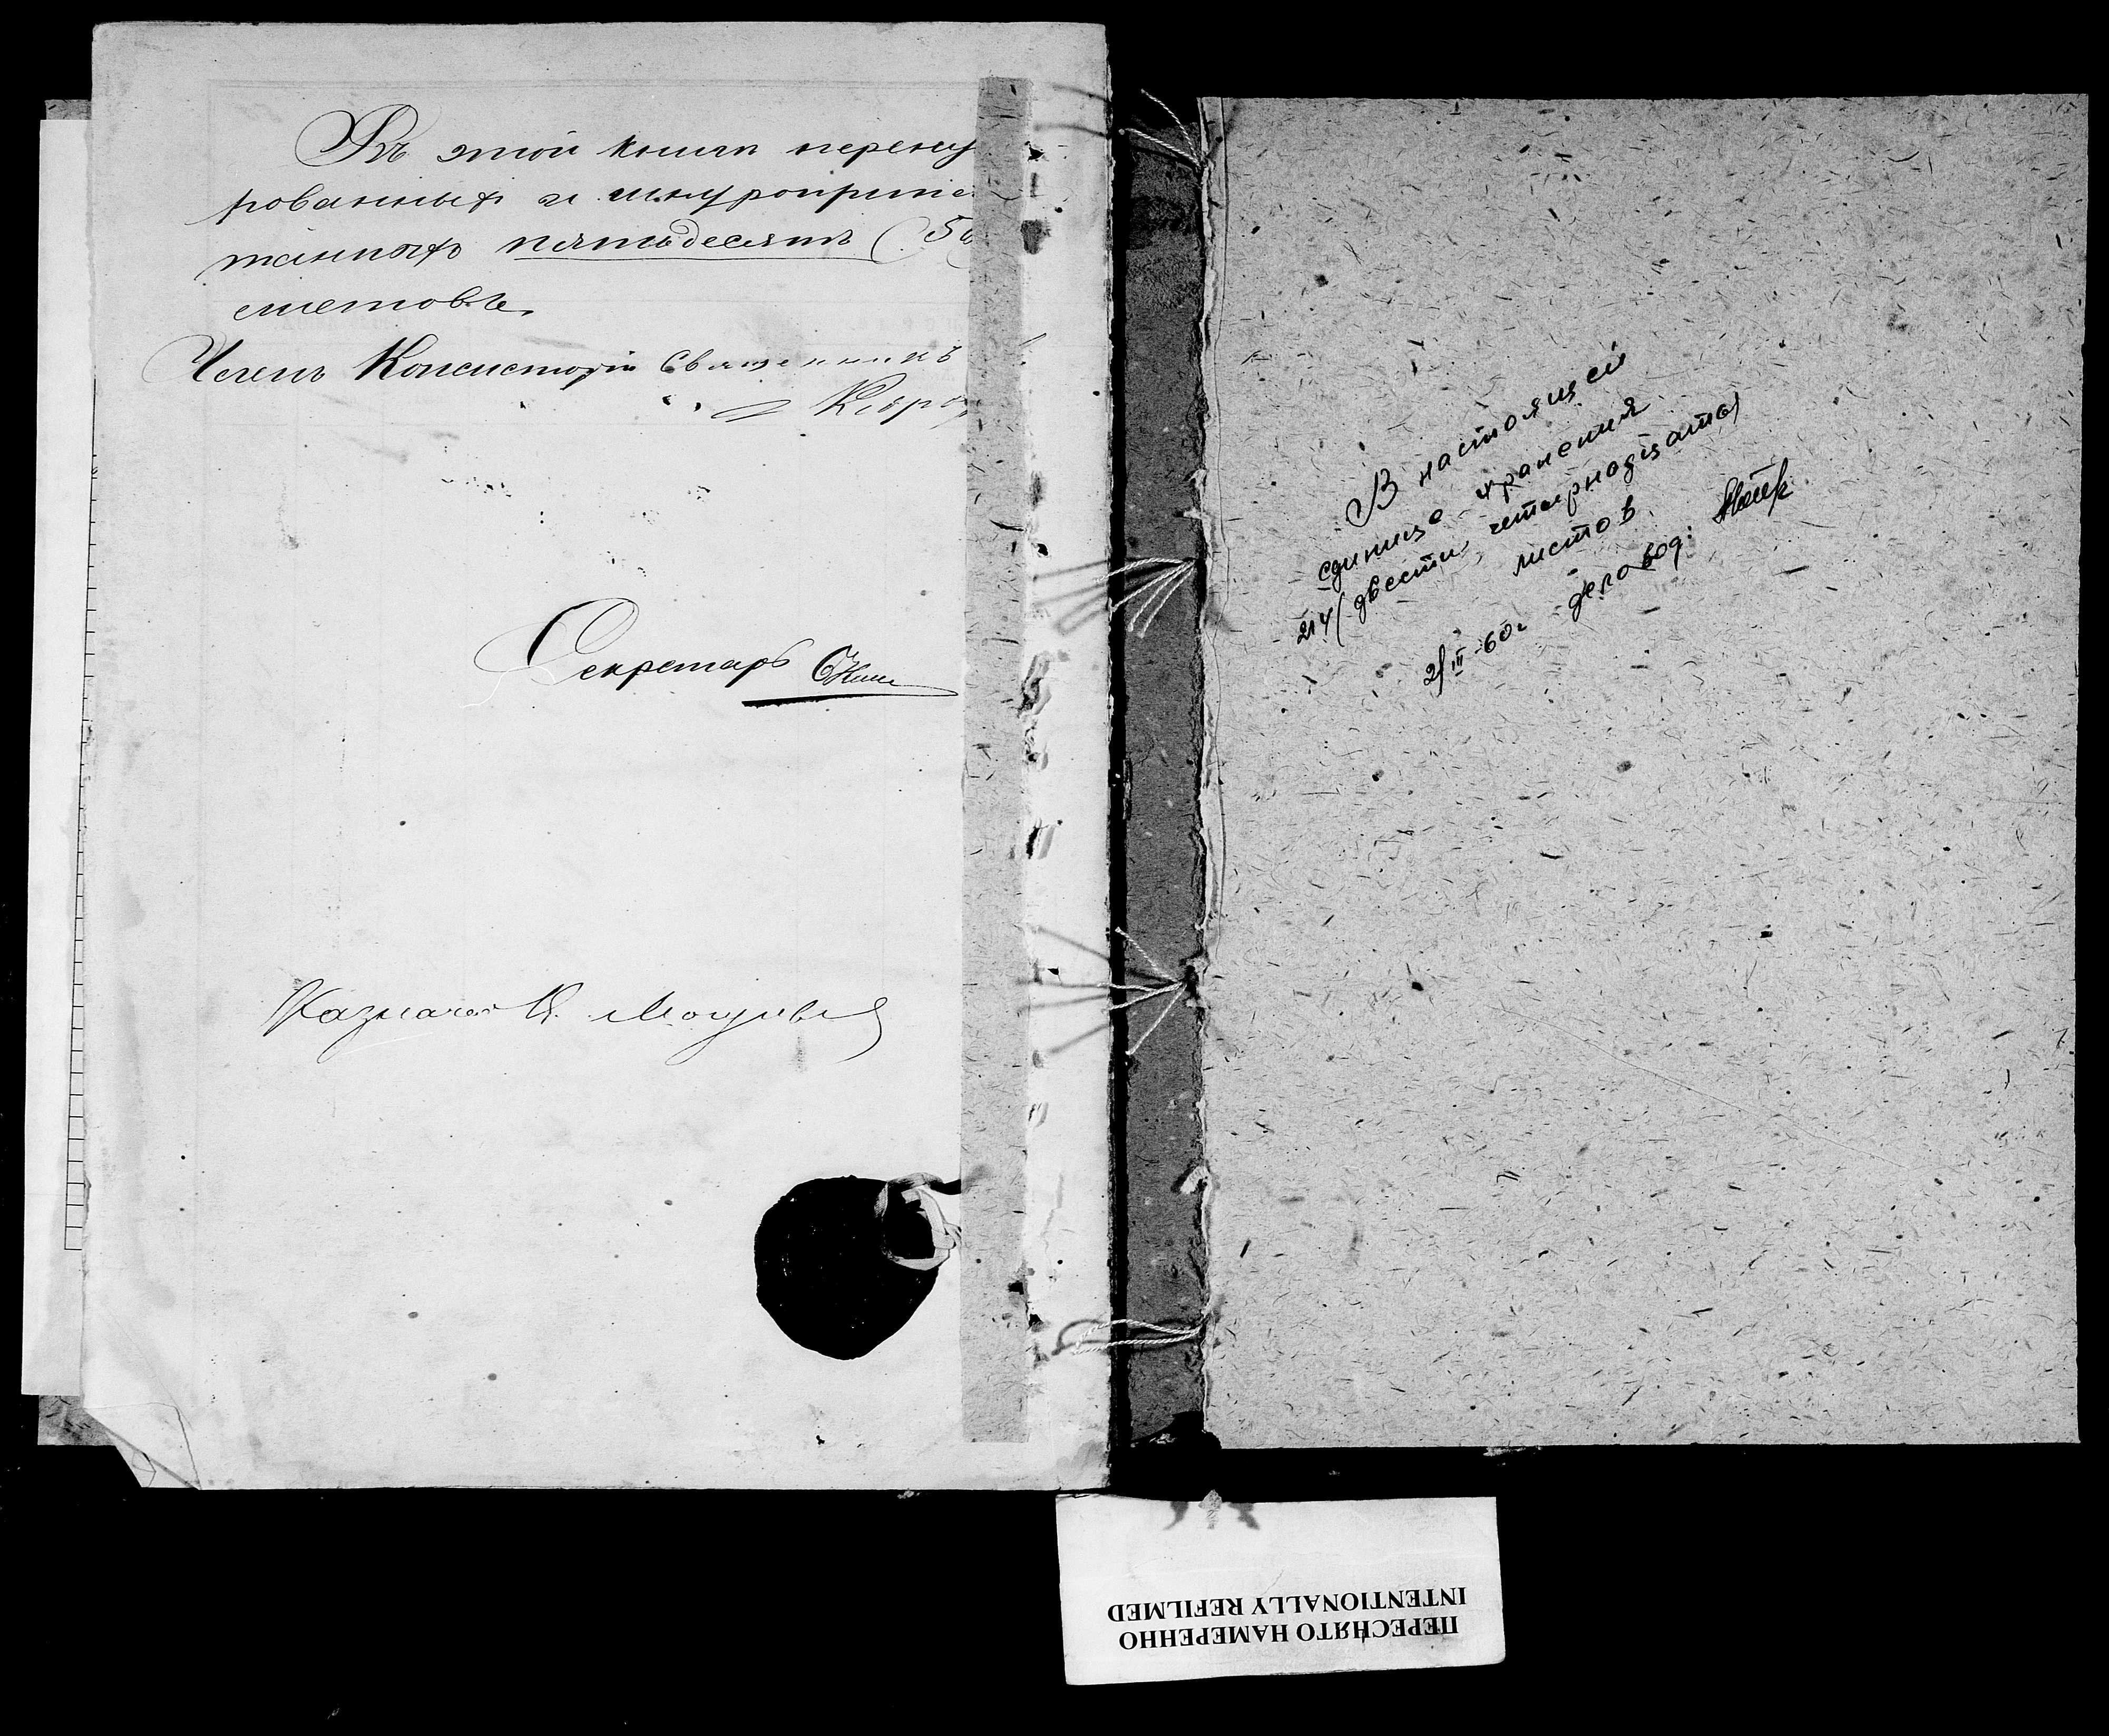 Въ этой книгѣ перену
рованныхъ и шнуроприпе
танныхъ пятьдесятъ (50
листовъ.
Членъ Консисторіи Священникъ
Секретарь
Казначей
В настоящей
единице хранения
214 (двести четырнадцать)
листов
2/III-60г делопод.
ПЕРЕСНЯТО НАМЕРЕННО
INTENTIONALLY REFILMED